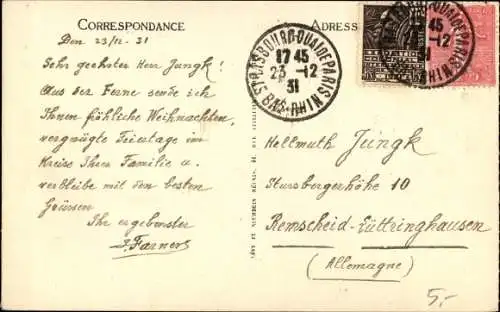 CORRESPONDANCE
Den 23/12 - 31
Sehr geehrter Herr Jungk!
Aus der Ferne sende ich
Ihnen fröhliche Weihnachten,
vergnügte Feiertage im
Kreise Ihrer Familie u.
verbleibe mit den besten
Grüssen
Ihr ergebenster
ADRESS
STRASBOURG-QUAI DE PARIS
17 45
23 -12
31
BAS-RHIN
45
-12
31
Hellmuth Jungk
10
Remscheid-Lüttringhausen
(Allemagne)
5,-